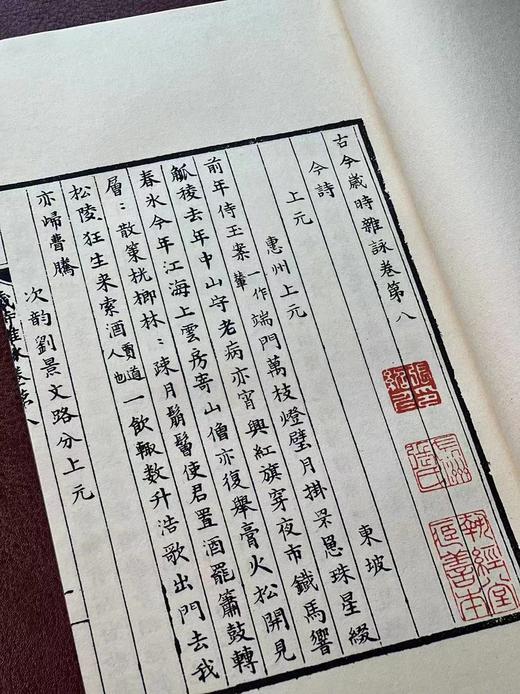 古今歲時雜詠卷第八
今詩
上元 東坡
惠州上元
前年侍王案一作輦端門萬枝燈璧月掛罘罳珠星綴
觚稜去年中山守老病亦宵興紅旗穿夜市鐵馬響
春氷今年江海上雲房寄山僧亦復舉膏火松開見
層〻散策桄榔林〻疎月鬅鬙使君置酒罷簫鼓轉
松陵狂生来索酒賈道人也一飲輒数升浩歌出門去我
亦歸瞢騰
次韵劉景文路分上元